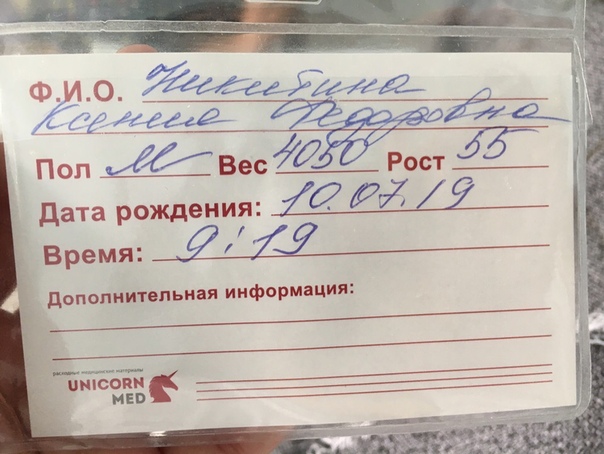 Ф.И.О. Никитина
Ксения Федоровна
Пол М Вес 4050 Рост 55
Дата рождения: 10.07.19
Время: 9:19
Дополнительная информация:
расходные медицинские материалы
UNICORN
MED